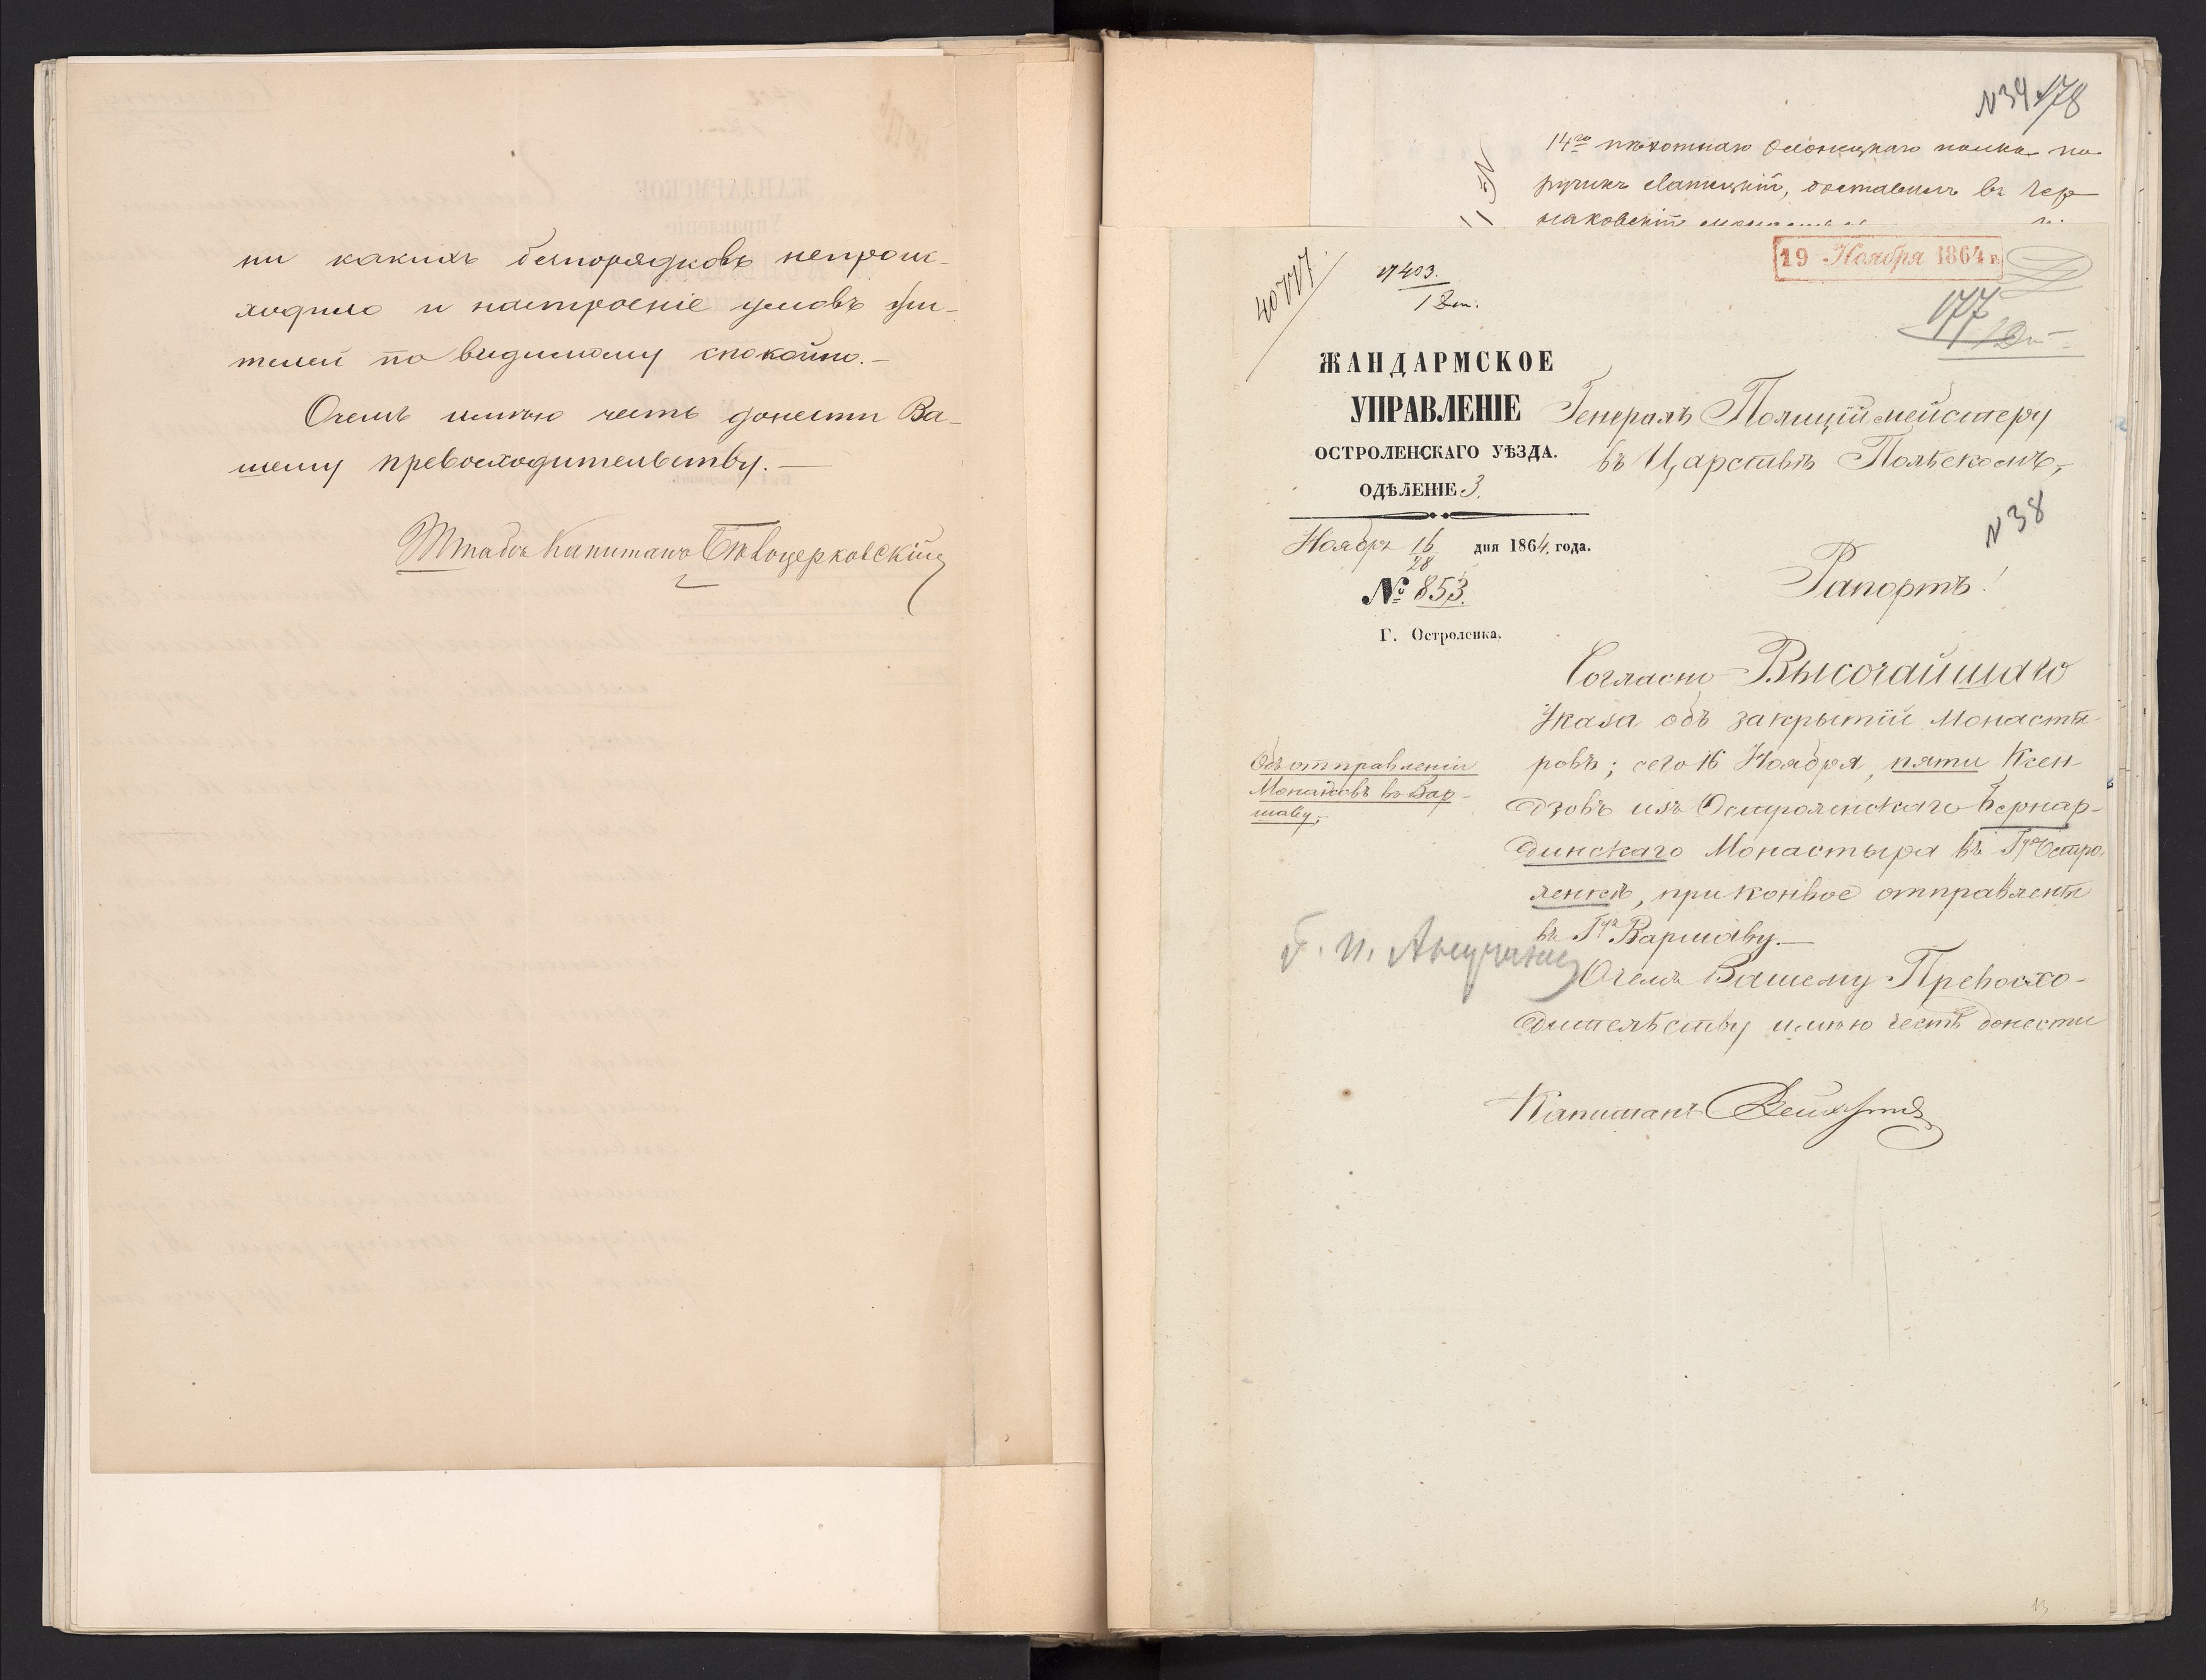 ни какихъ безпорядковъ непроис-
ходило и настроеніе умовъ жи-
телей по видимому спокойно.-
Очемъ имѣю честь донести Ва-
шему превосходительству.-
Штабсъ Капитанъ
N 39 178
14го пѣхотнаго Олонецкаго полка по-
ручикъ доставилъ въ Чер-
няковскій
19 Ноября 1864 г.
40777
17403.
177
ЖАНДАРМСКОЕ
УПРАВЛЕНІЕ
ОСТРОЛЕНСКАГО УѢЗДА.
ОДѢЛЕНІЕ 3.
Ноября 16/28 дня 1864 года.
№ 853.
Г. Остроленка.
Генералъ Полиціймейстеру
въ Царствѣ Польскомъ,
N 38
Рапортъ!
Объ отправленіи
Монаховъ въ Вар-
шаву,
Согласно Высочайшаго
Указа объ закрытіи Монасты-
ровъ; сего 16 Ноября, пяти Ксен-
дзовъ изъ Остроленскаго Бернар-
динскаго Монастыра въ Гдѣ Остро-
ленкѣ, при конвое отправлены
въ Гдъ Варшаву.-
Очемъ Вашему Превосхо-
дительству имѣю честь донести
Капитанъ
13